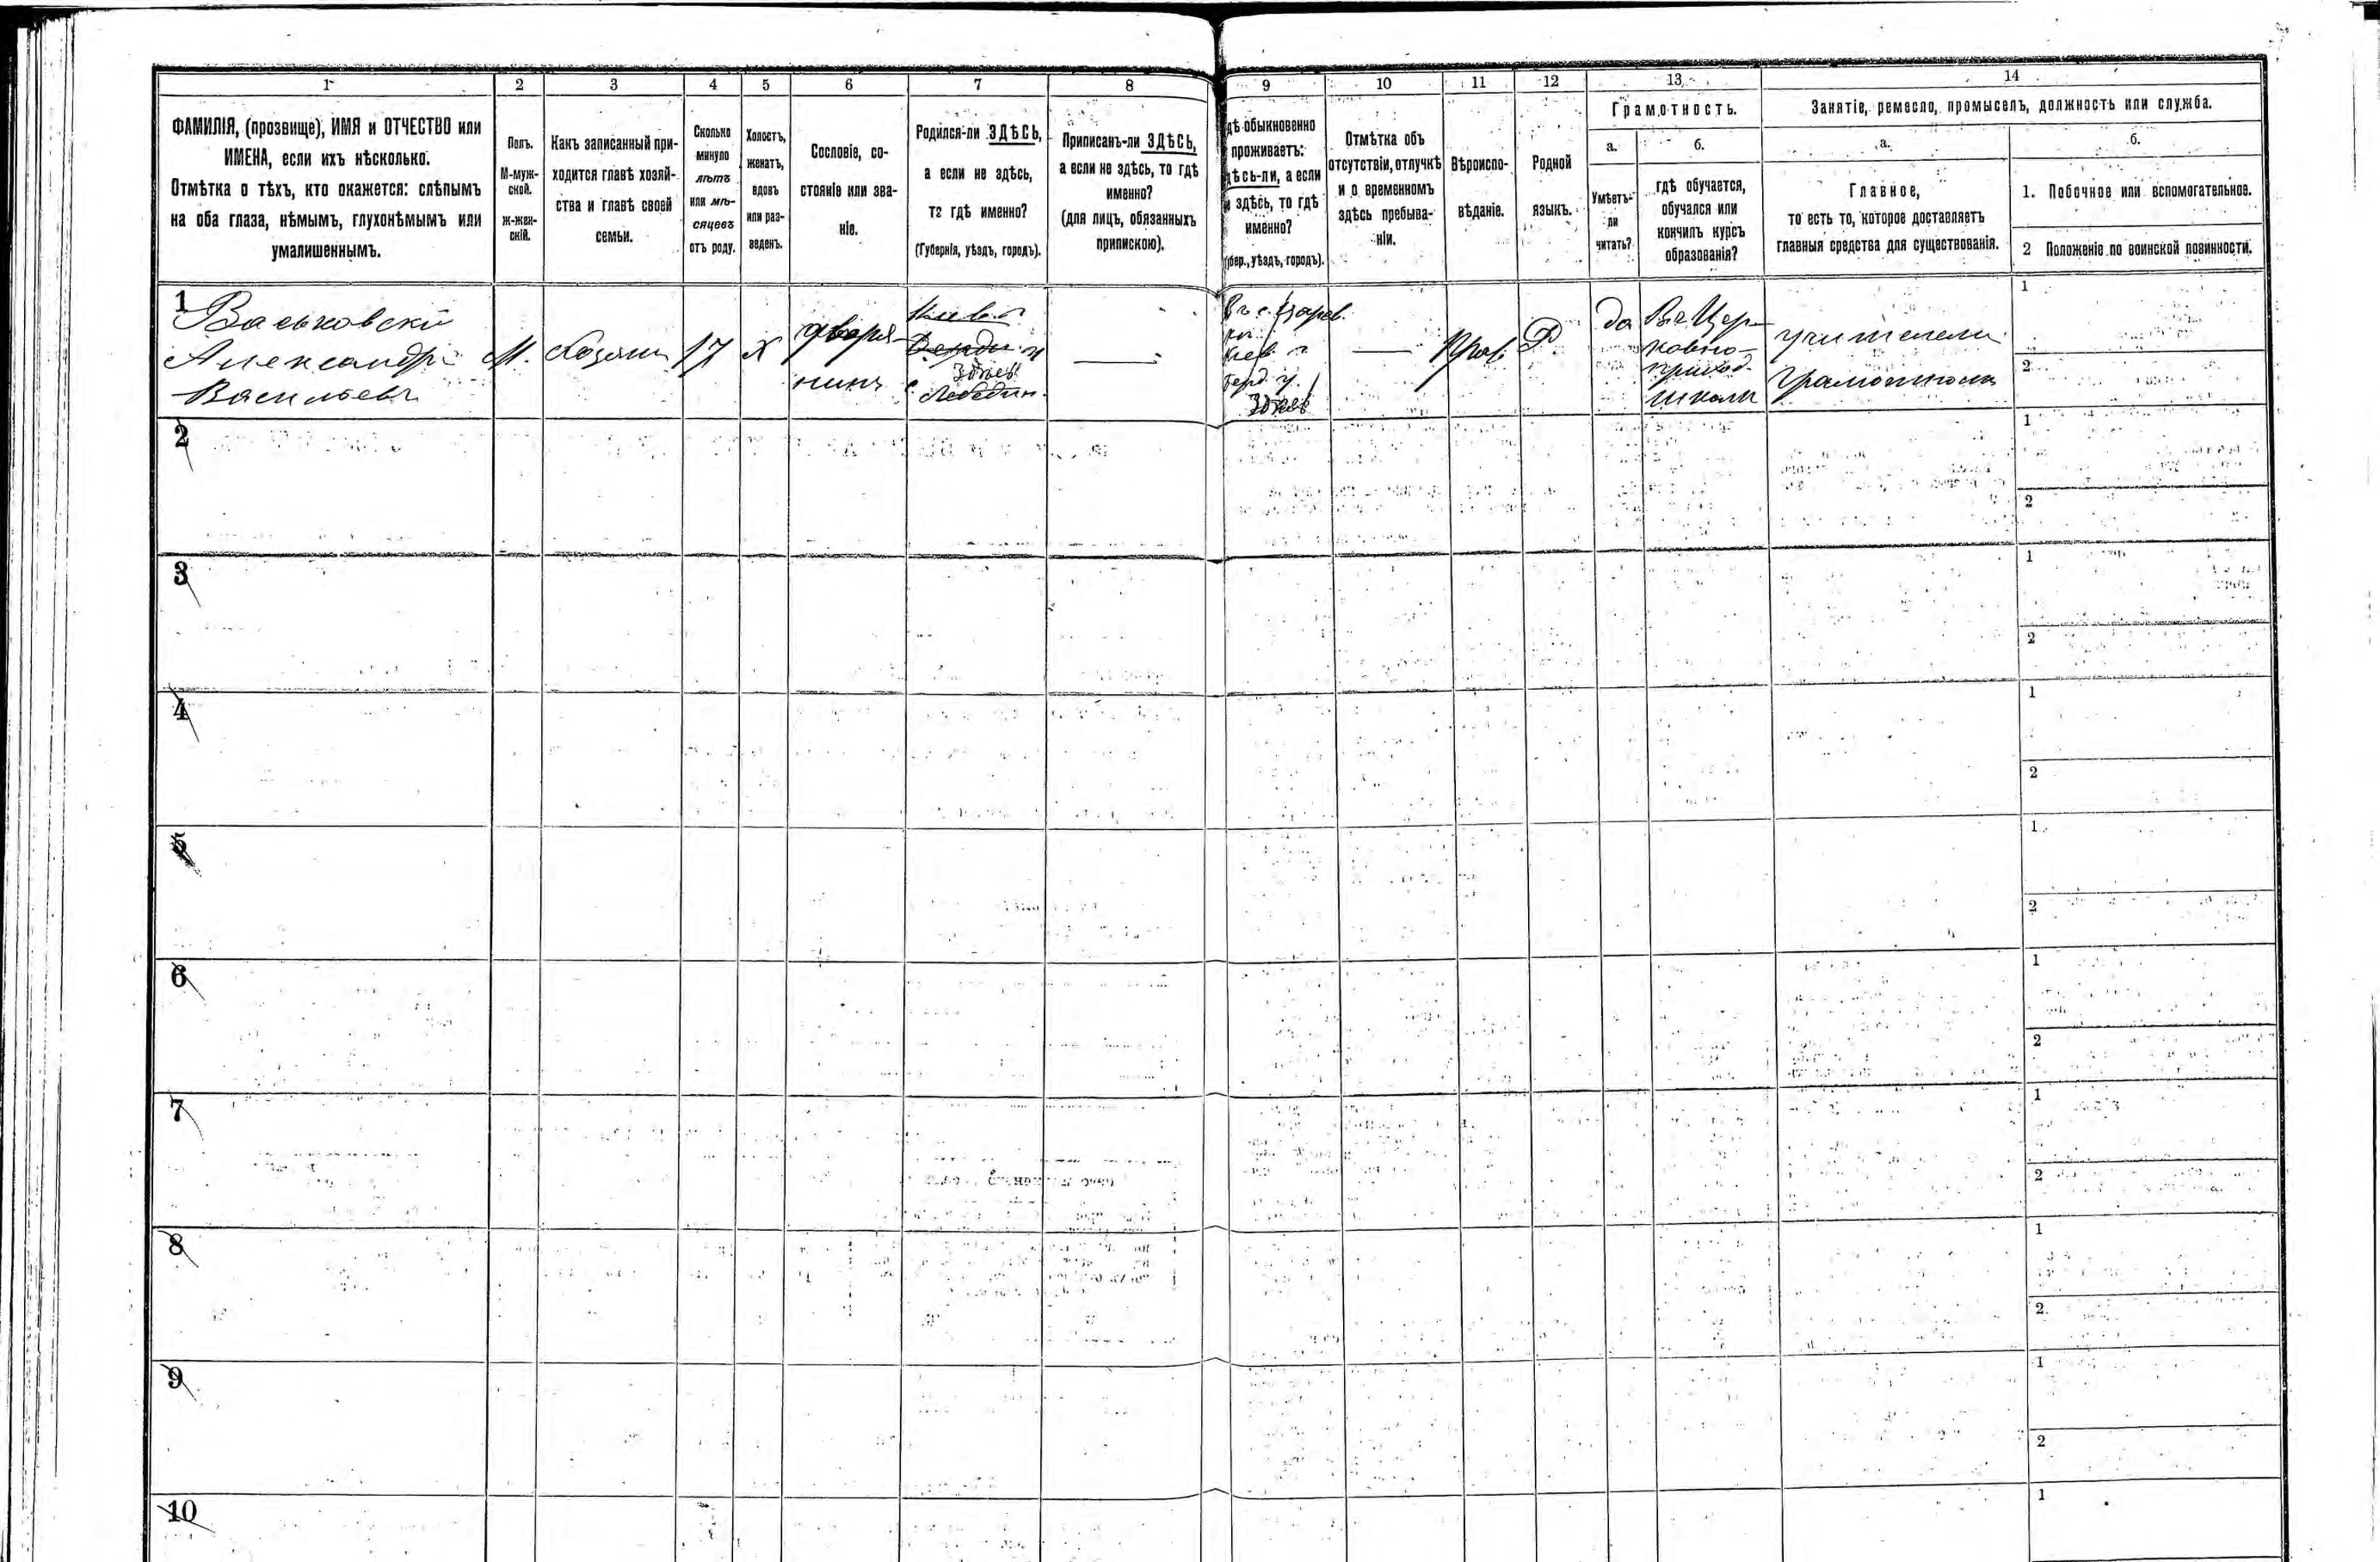 1 2 3 4 5 6 7 8 9 10 11 12 13 14
ФАМИЛІЯ, (прозвище), ИМЯ и ОТЧЕСТВО или
ИМЕНА, если ихъ нѣсколько.
Отмѣтка о тѣхъ, кто окажется: слѣпымъ
на оба глаза, нѣмымъ, глухонѣмымъ или
умалишеннымъ.
Полъ.
М-муж-
ской.
ж-жен-
скій.
Какъ записанный при-
ходится главѣ хозяй-
ства и главѣ своей
семьи.
Сколько
минуло
лѣтъ
или мѣ-
сяцевъ
отъ роду.
Холостъ,
женатъ,
вдовъ
или раз-
веденъ.
Сословіе, со-
стояніе или зва-
ніе.
Родился-ли ЗДѢСЬ,
а если не здѣсь,
то гдѣ именно?
(Губернія, уѣздъ, городъ).
Приписанъ-ли ЗДѢСЬ,
а если не здѣсь, то гдѣ
именно?
(для лицъ, обязанныхъ
припискою).
дѣ обыкновенно
проживаетъ:
дѣсь-ли, а если
и здѣсь, то гдѣ
именно?
убер., уѣздъ, городъ).
Отмѣтка объ
отсутствіи, отлучкѣ
и о временномъ
здѣсь пребыва-
ніи.
Вѣроиспо-
вѣданіе.
Родной
языкъ.
Грамотность.
а.
Умѣетъ-
ли
читать?
б.
гдѣ обучается,
обучался или
кончилъ курсъ
образованія?
Занятіе, ремесло, промыселъ, должность или служба.
а.
Главное,
то есть то, которое доставляетъ
главныя средства для существованія.
б.
1. Побочное или вспомогательное.
2 Положеніе по воинской повинности.
1
Васьковскій
Александръ
Васильевъ
М.
Хозяин
17
Х
дворя-
нинъ
Киев. г
Берди. у
Здѣсь
с. Лебедин.
—
Киев. г
Берд. у.
Здѣсь
—
Прав.
Р.
да
Въ Цер-
ковно-
приход.
школѣ
учитель
грамоты
1
2
2
1
2
3
1
2
4
1
2
5
1
2
6
1
2
7
1
2
8
1
2
9
1
2
10
1